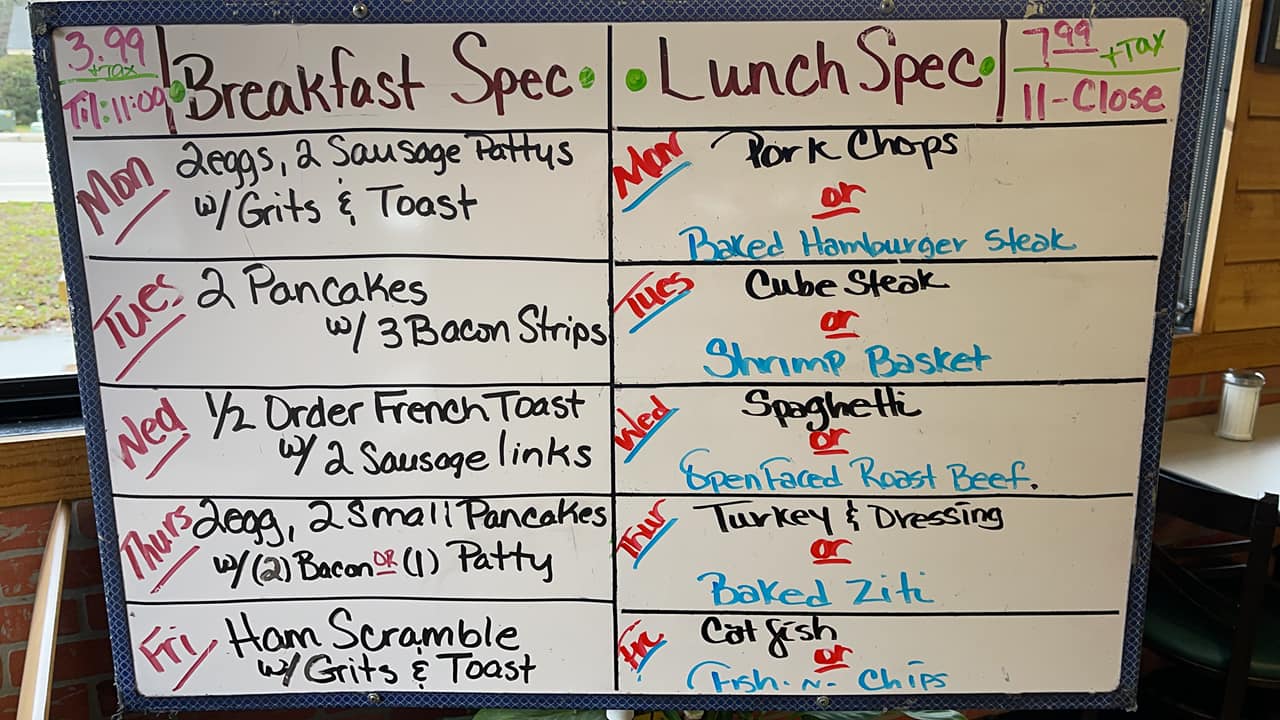 3.99
+Tax
Til:11:00
Breakfast Spec.
Mon
2eggs, 2 Sausage Pattys
w/ Grits & Toast
Tues
2 Pancakes
w/ 3 Bacon Strips
Wed
1/2 Order French Toast
w/ 2 Sausage links
Thurs
2egg, 2 Small Pancakes
w/ (2) Bacon OR (1) Patty
Fri
Ham Scramble
w/ Grits & Toast
Lunch Spec.
7.99 +Tax
11-Close
Mon
Pork Chops
or
Baked Hamburger Steak
Tues
Cube Steak
or
Shrimp Basket
Wed
Spaghetti
or
Open Faced Roast Beef.
Thur
Turkey & Dressing
or
Baked Ziti
Fri
Cat fish
or
Fish-N-Chips